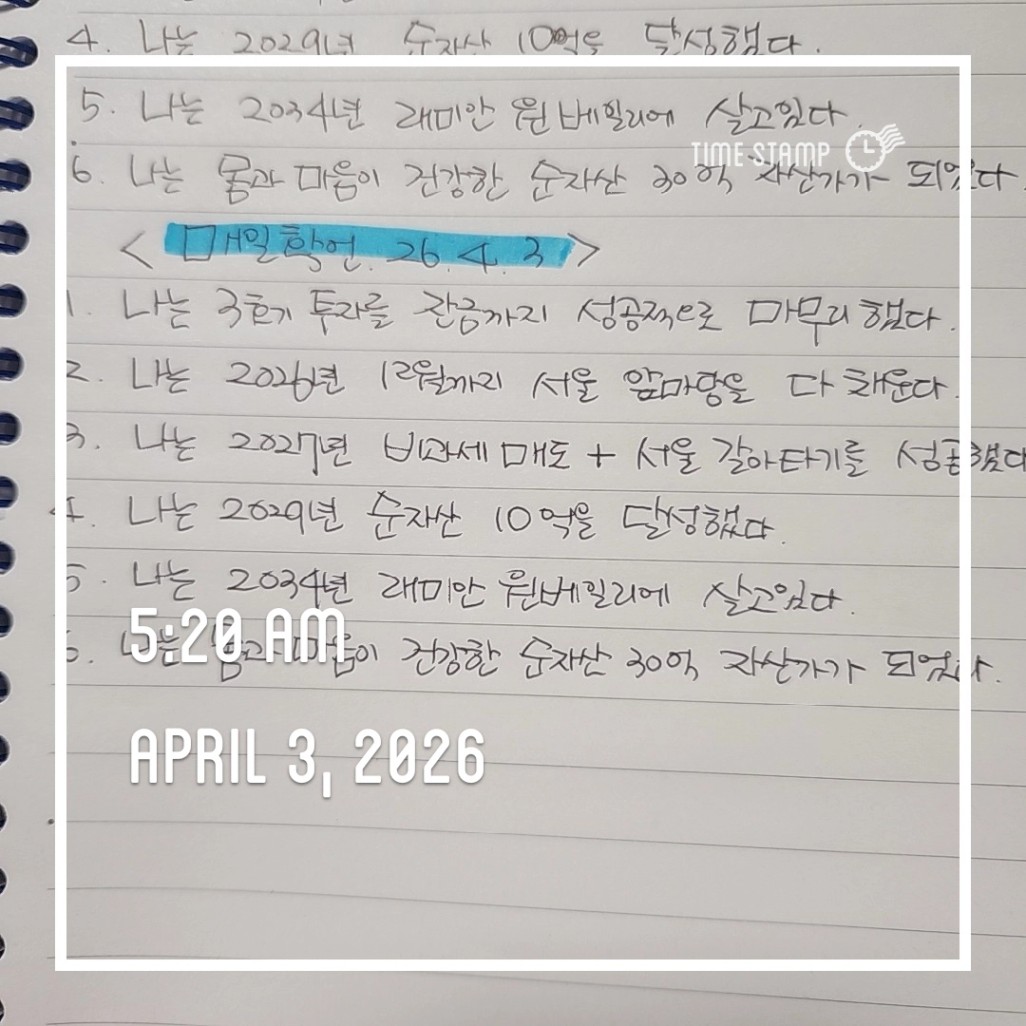 4. 나는 2029년 순자산 10억을 달성했다.
5. 나는 2034년 래미안 원베일리에 살고있다.
TIME STAMP
6. 나는 몸과 마음이 건강한 순자산 30억 자산가가 되었다.
< 매일확언. 26. 4. 3 >
1. 나는 3호기 투자를 잔금까지 성공적으로 마무리 했다.
2. 나는 2026년 12월까지 서울 앞마당을 다 채운다.
3. 나는 2027년 비과세 매도 + 서울 갈아타기를 성공했다
4. 나는 2029년 순자산 10억을 달성했다.
5. 나는 2034년 래미안 원베일리에 살고있다.
6. 나는 몸과 마음이 건강한 순자산 30억 자산가가 되었다.
5:20 AM
APRIL 3, 2026